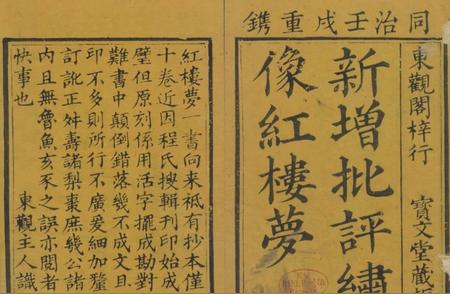 同治壬戌重鐫
東觀閣梓行 寶文堂藏
新增批評繡
像紅樓夢
紅樓夢一書向來祇有抄本僅
十卷近因程氏搜輯刊印始成
璧但原刻係用活字擺成勘對
難書中顛倒錯落幾不成文且
印不多則所行不廣爰細加釐
訂訛正舛壽諸梨棗庶幾公諸
內且無魯魚亥豕之誤亦閱者
快事也 東觀主人識